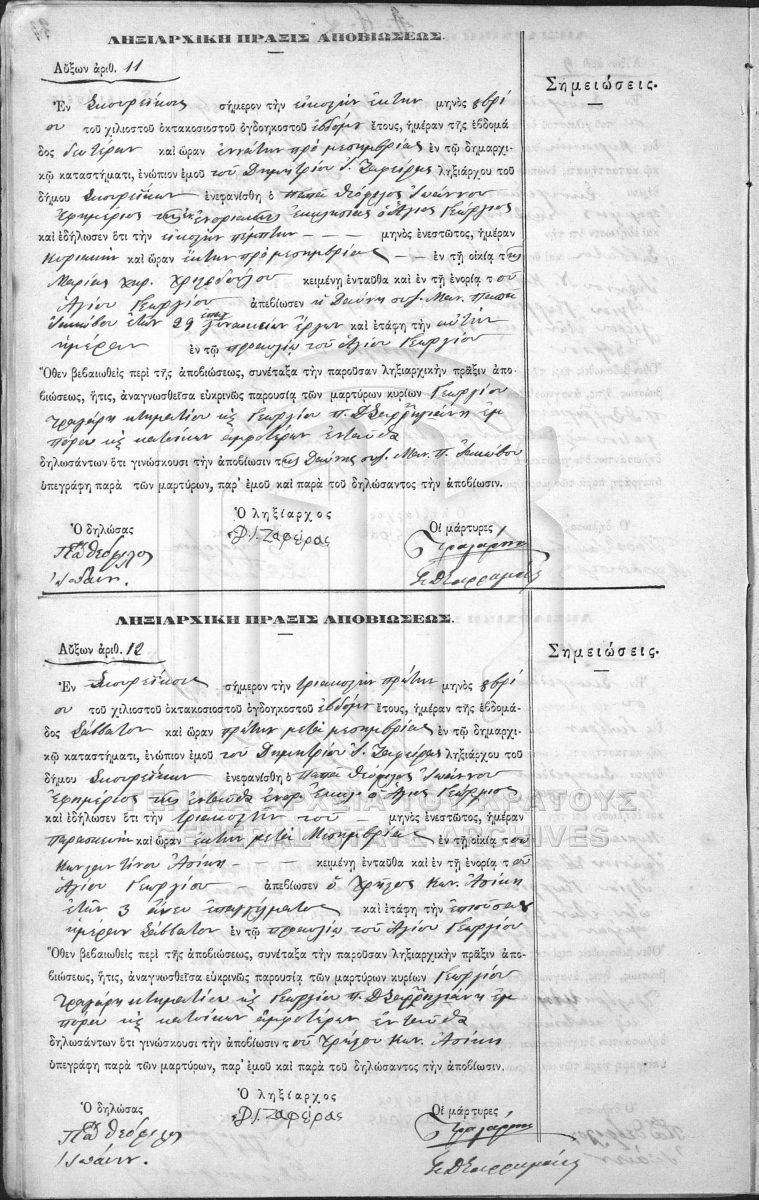 ΛΗΞΙΑΡΧΙΚΗ ΠΡΑΞΙΣ ΑΠΟΒΙΩΣΕΩΣ.
Αὔξων ἀριθ. 11
Σημειώσεις.
Ἐν σήμερον τὴν εἰκοστὴν ἕκτην μηνὸς 8βρί
ου τοῦ χιλιοστοῦ ὀκτακοσιοστοῦ ὀγδοηκοστοῦ ἑβδόμου ἔτους, ἡμέραν τῆς ἑβδομά
δος Δευτέραν καὶ ὥραν ἐννάτην πρὸ μεσημβρίας ἐν τῷ δημαρχι-
κῷ καταστήματι, ἐνώπιον ἐμοῦ τοῦ Δημητρίου Ι. Ζαφείρας ληξιάρχου τοῦ
δήμου ἐνεφανίσθη ὁ παπᾶ Θεόφιλος Ἰωάννου
ἐφημέριος τῆς ἐνοριακῆς ἐκκλησίας ὁ Ἅγιος Γεώργιος
καὶ ἐδήλωσεν ὅτι τὴν εἰκοστὴν πέμπτην — — — μηνὸς ἐνεστῶτος, ἡμέραν
Κυριακὴν καὶ ὥραν ἕκτην πρὸ μεσημβρίας — ἐν τῇ οἰκίᾳ τῆς
Μαρίας χηρ. κειμένῃ ἐνταῦθα καὶ ἐν τῇ ἐνορίᾳ τοῦ
Ἁγίου Γεωργίου ἀπεβίωσεν ἡ Δάφνη συζ. Μαν. Παπα
Ἰακώβου ἐτῶν 29 γυναικείων ἔργων καὶ ἐτάφη τὴν αὐτὴν
ἡμέραν ἐν τῷ προαυλίῳ τοῦ Ἁγίου Γεωργίου
Ὅθεν βεβαιωθεὶς περὶ τῆς ἀποβιώσεως, συνέταξα τὴν παροῦσαν ληξιαρχικὴν πρᾶξιν ἀπο-
βιώσεως, ἥτις, ἀναγνωσθεῖσα εὐκρινῶς παρουσίᾳ τῶν μαρτύρων κυρίων Γεωργίου
Τραγάρη κτηματίου κ̀ Γεωργίου π. Δ. ἐμ
πόρου κ̀ κατοίκων ἀμφοτέρων ἐνταῦθα
δηλωσάντων ὅτι γινώσκουσι τὴν ἀποβίωσιν τῆς Δάφνης συζ. Μαν. Π. Ἰακώβου
ὑπεγράφη παρὰ τῶν μαρτύρων, παρ' ἐμοῦ καὶ παρὰ τοῦ δηλώσαντος τὴν ἀποβίωσιν.
Ὁ δηλώσας
Ὁ ληξίαρχος
Οἱ μάρτυρες
Πα Θεόφιλος
Δ. Ι. Ζαφείρας
Γ Τραγάρης
Ἰωάνν.
ΛΗΞΙΑΡΧΙΚΗ ΠΡΑΞΙΣ ΑΠΟΒΙΩΣΕΩΣ.
Αὔξων ἀριθ. 12
Σημειώσεις.
Ἐν σήμερον τὴν τριακοστὴν πρώτην μηνὸς 8βρί
ου τοῦ χιλιοστοῦ ὀκτακοσιοστοῦ ὀγδοηκοστοῦ ἑβδόμου ἔτους, ἡμέραν τῆς ἑβδομά-
δος Σάββατον καὶ ὥραν πρώτην μετὰ μεσημβρίας ἐν τῷ δημαρχι-
κῷ καταστήματι, ἐνώπιον ἐμοῦ τοῦ Δημητρίου Ι. Ζαφείρας ληξιάρχου τοῦ
δήμου ἐνεφανίσθη ὁ παπᾶ Θεόφιλος Ἰωάννου
Ἐφημέριος τῆς ἐνταῦθα ἐνορ. Ἐκκλ. ὁ Ἅγιος Γεώργιος
καὶ ἐδήλωσεν ὅτι τὴν τριακοστὴν τοῦ — μηνὸς ἐνεστῶτος, ἡμέραν
Παρασκευὴν καὶ ὥραν ἕκτην μετὰ Μεσημβρίας ἐν τῇ οἰκίᾳ τοῦ
Κωνσταντίνου — — κειμένῃ ἐνταῦθα καὶ ἐν τῇ ἐνορίᾳ τοῦ
Ἁγίου Γεωργίου ἀπεβίωσεν ὁ Χρῆστος Κων.
ἐτῶν 3 ἄνευ ἐπαγγέλματος καὶ ἐτάφη τὴν ἐπιοῦσαν
ἡμέραν Σάββατον ἐν τῷ προαυλίῳ τοῦ Ἁγίου Γεωργίου
Ὅθεν βεβαιωθεὶς περὶ τῆς ἀποβιώσεως, συνέταξα τὴν παροῦσαν ληξιαρχικὴν πρᾶξιν ἀπο-
βιώσεως, ἥτις, ἀναγνωσθεῖσα εὐκρινῶς παρουσίᾳ τῶν μαρτύρων κυρίων Γεωργίου
Τραγάρη κτηματίου κ̀ Γεωργίου π. Δ. ἐμ
πόρου κ̀ κατοίκων ἀμφοτέρων ἐνταῦθα
δηλωσάντων ὅτι γινώσκουσι τὴν ἀποβίωσιν τοῦ Χρήστου Κων.
ὑπεγράφη παρὰ τῶν μαρτύρων, παρ' ἐμοῦ καὶ παρὰ τοῦ δηλώσαντος τὴν ἀποβίωσιν.
Ὁ δηλώσας
Ὁ ληξίαρχος
Οἱ μάρτυρες
Πα Θεόφιλος
Δ. Ι. Ζαφείρας
Γ Τραγάρης
Ἰωάνν.
ΓΕΝΙΚΑ ΑΡΧΕΙΑ ΤΟΥ ΚΡΑΤΟΥΣ
GENERAL STATE ARCHIVES